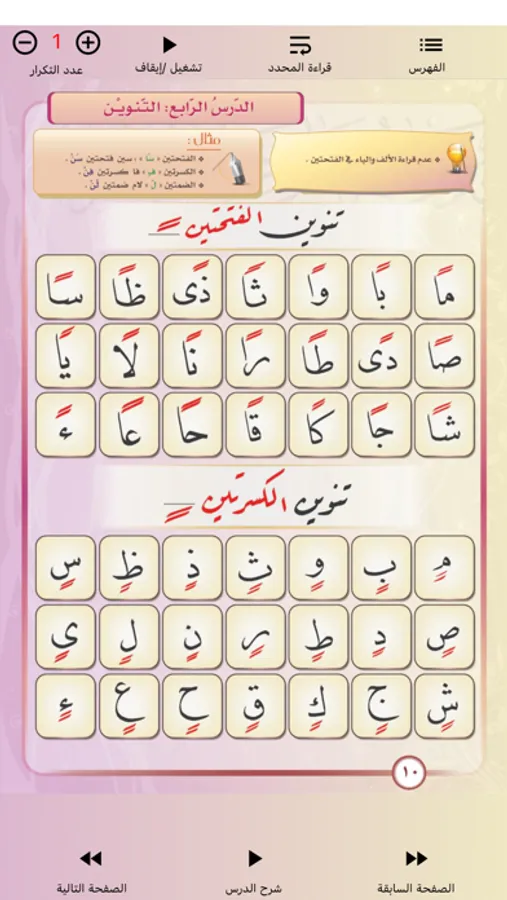 الفهرس قراءة المحدد تشغيل /إيقاف عدد التكرار
1
الدّرسُ الرّابع: التّنويـْن
* عدم قراءة الألف والياء في الفتحتين .
مثال :
* الفتحتين « سًا » : سين فتحتين سَنْ .
* الكسرتين « فٍ » فا كسرتين فِنْ .
* الضمتين « لٌ » لام ضمتين لُنْ .
تنوين الفتحتين ـًـ
مًا بًا وًا ثًا ذًى ظًا سًا
صًا دًى طًا رًا نًا لًا يًا
شًا جًا كًا قًا حًا عًا ءً
تنوين الكسرتين ـٍـ
مٍ بٍ وٍ ثٍ ذٍ ظٍ سٍ
صٍ دٍ طٍ رٍ نٍ لٍ يٍ
شٍ جٍ كٍ قٍ حٍ عٍ ءٍ
١٠
الصفحة السابقة شرح الدرس الصفحة التالية